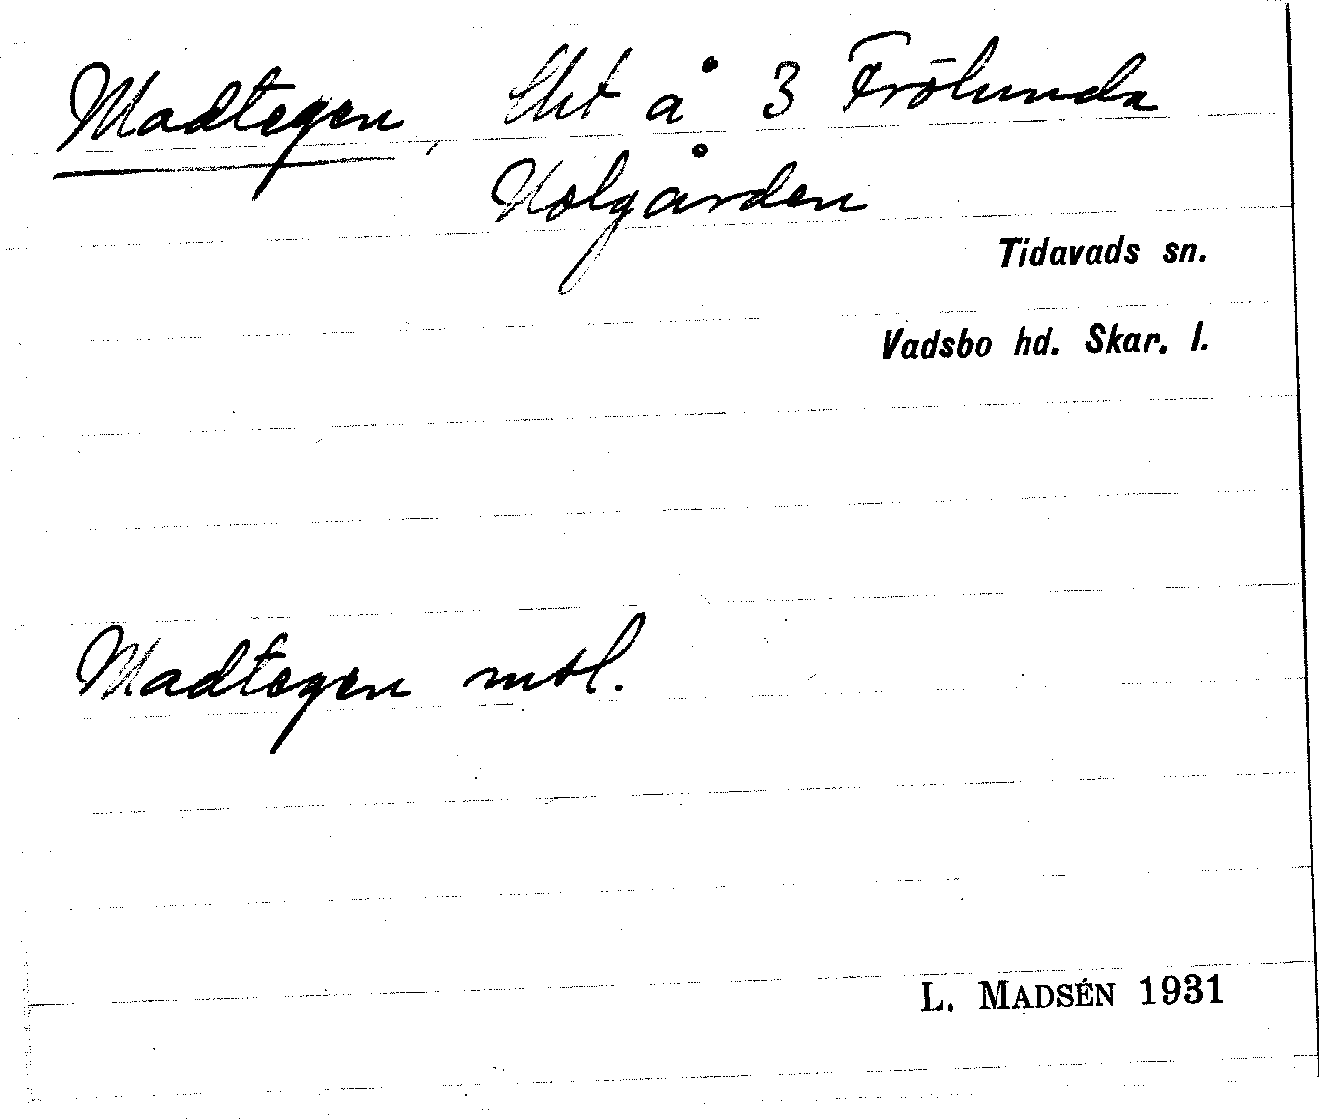 Madtegen, Lht å 3 Frölunda
Holgården
Tidavads sn.
Vadsbo hd. Skar. l.
Madtegen mtl.
L. MADSÉN 1931